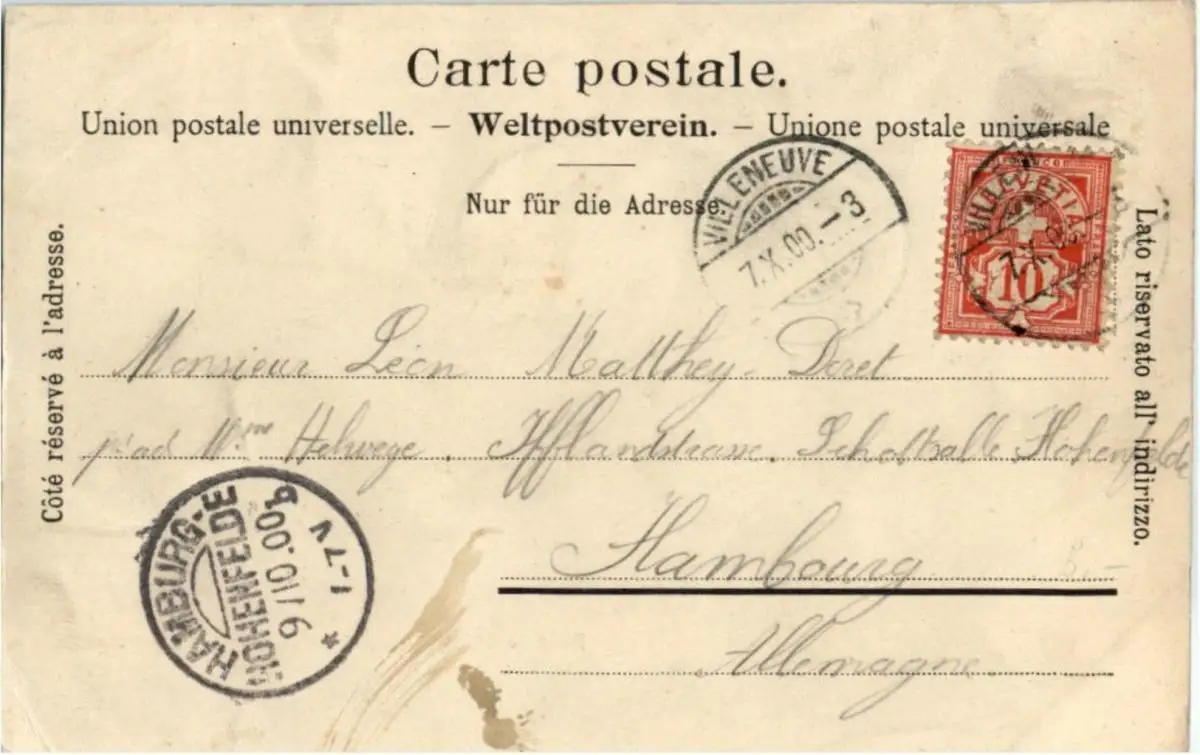 Carte postale.
Union postale universelle. – Weltpostverein. – Unione postale universale
Nur für die Adresse.
Côté réservé à l'adresse.
Lato riservato all' indirizzo.
VILLENEUVE
7.X.00.–3
FRANCO
HELVETIA
10
VILLENEUVE
7.X.00
Monsieur Léon Matthey-Doret
Mme Helwege, Ifflandstrasse, Hohenfelde
Hambourg
Allemagne
HAMBURG-E
HOHENFELDE
9/10.00
1-7V
*